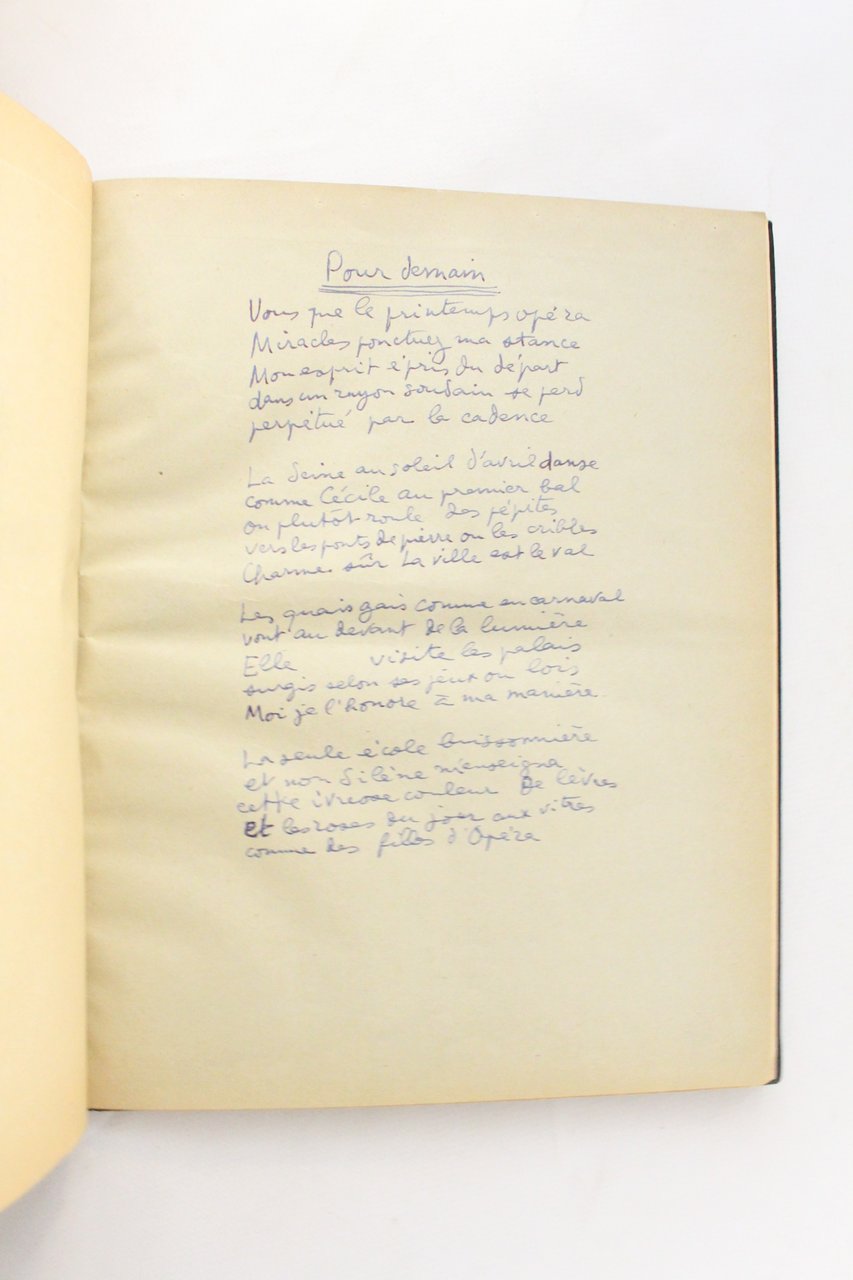 Pour demain
Vous que le printemps opéra
Miracles ponctuez ma stance
Mon esprit épris du départ
dans un rayon soudain se perd
perpétué par la cadence
La Seine au soleil d'avril danse
comme Cécile au premier bal
ou plutôt roule des pépites
vers les ponts de pierre ou les cribles
Charme sûr La ville est le val
Les quais gais comme en carnaval
vont au devant de la lumière
Elle visite les palais
surgis selon ses jeux ou lois
Moi je l'honore à ma manière
La seule école buissonnière
et non Silène m'enseigna
cette ivresse couleur de lèvres
et les roses du jour aux vitres
comme des filles d'Opéra